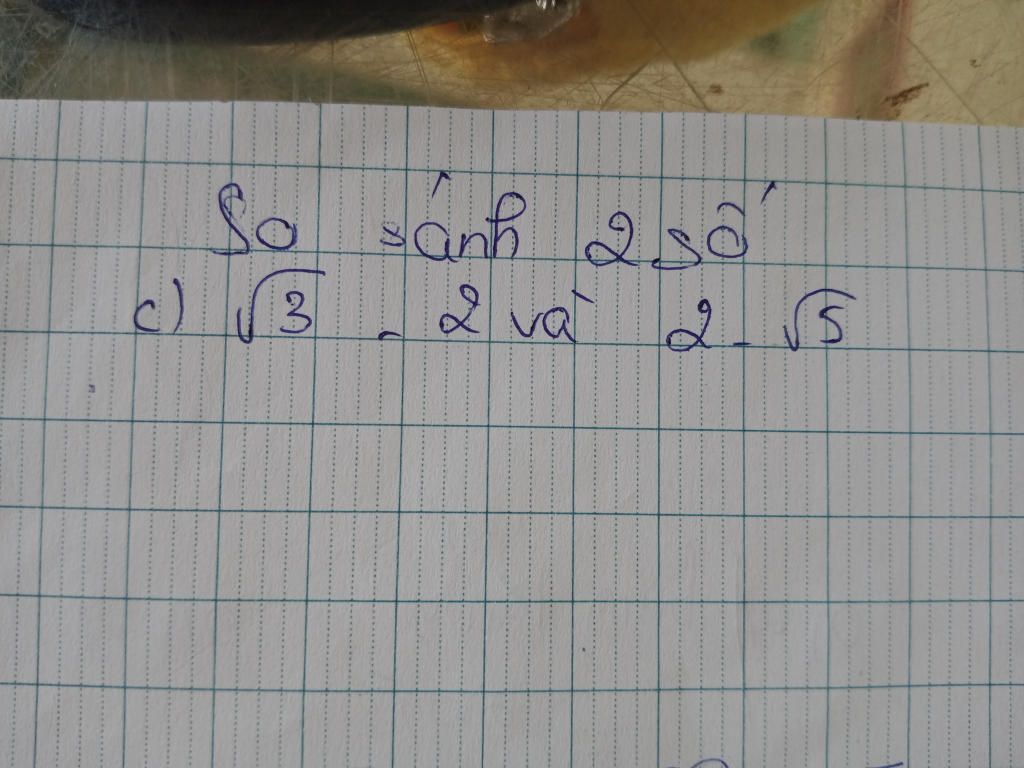 So sánh 2 số
c) √3 - 2 và 2 - √5